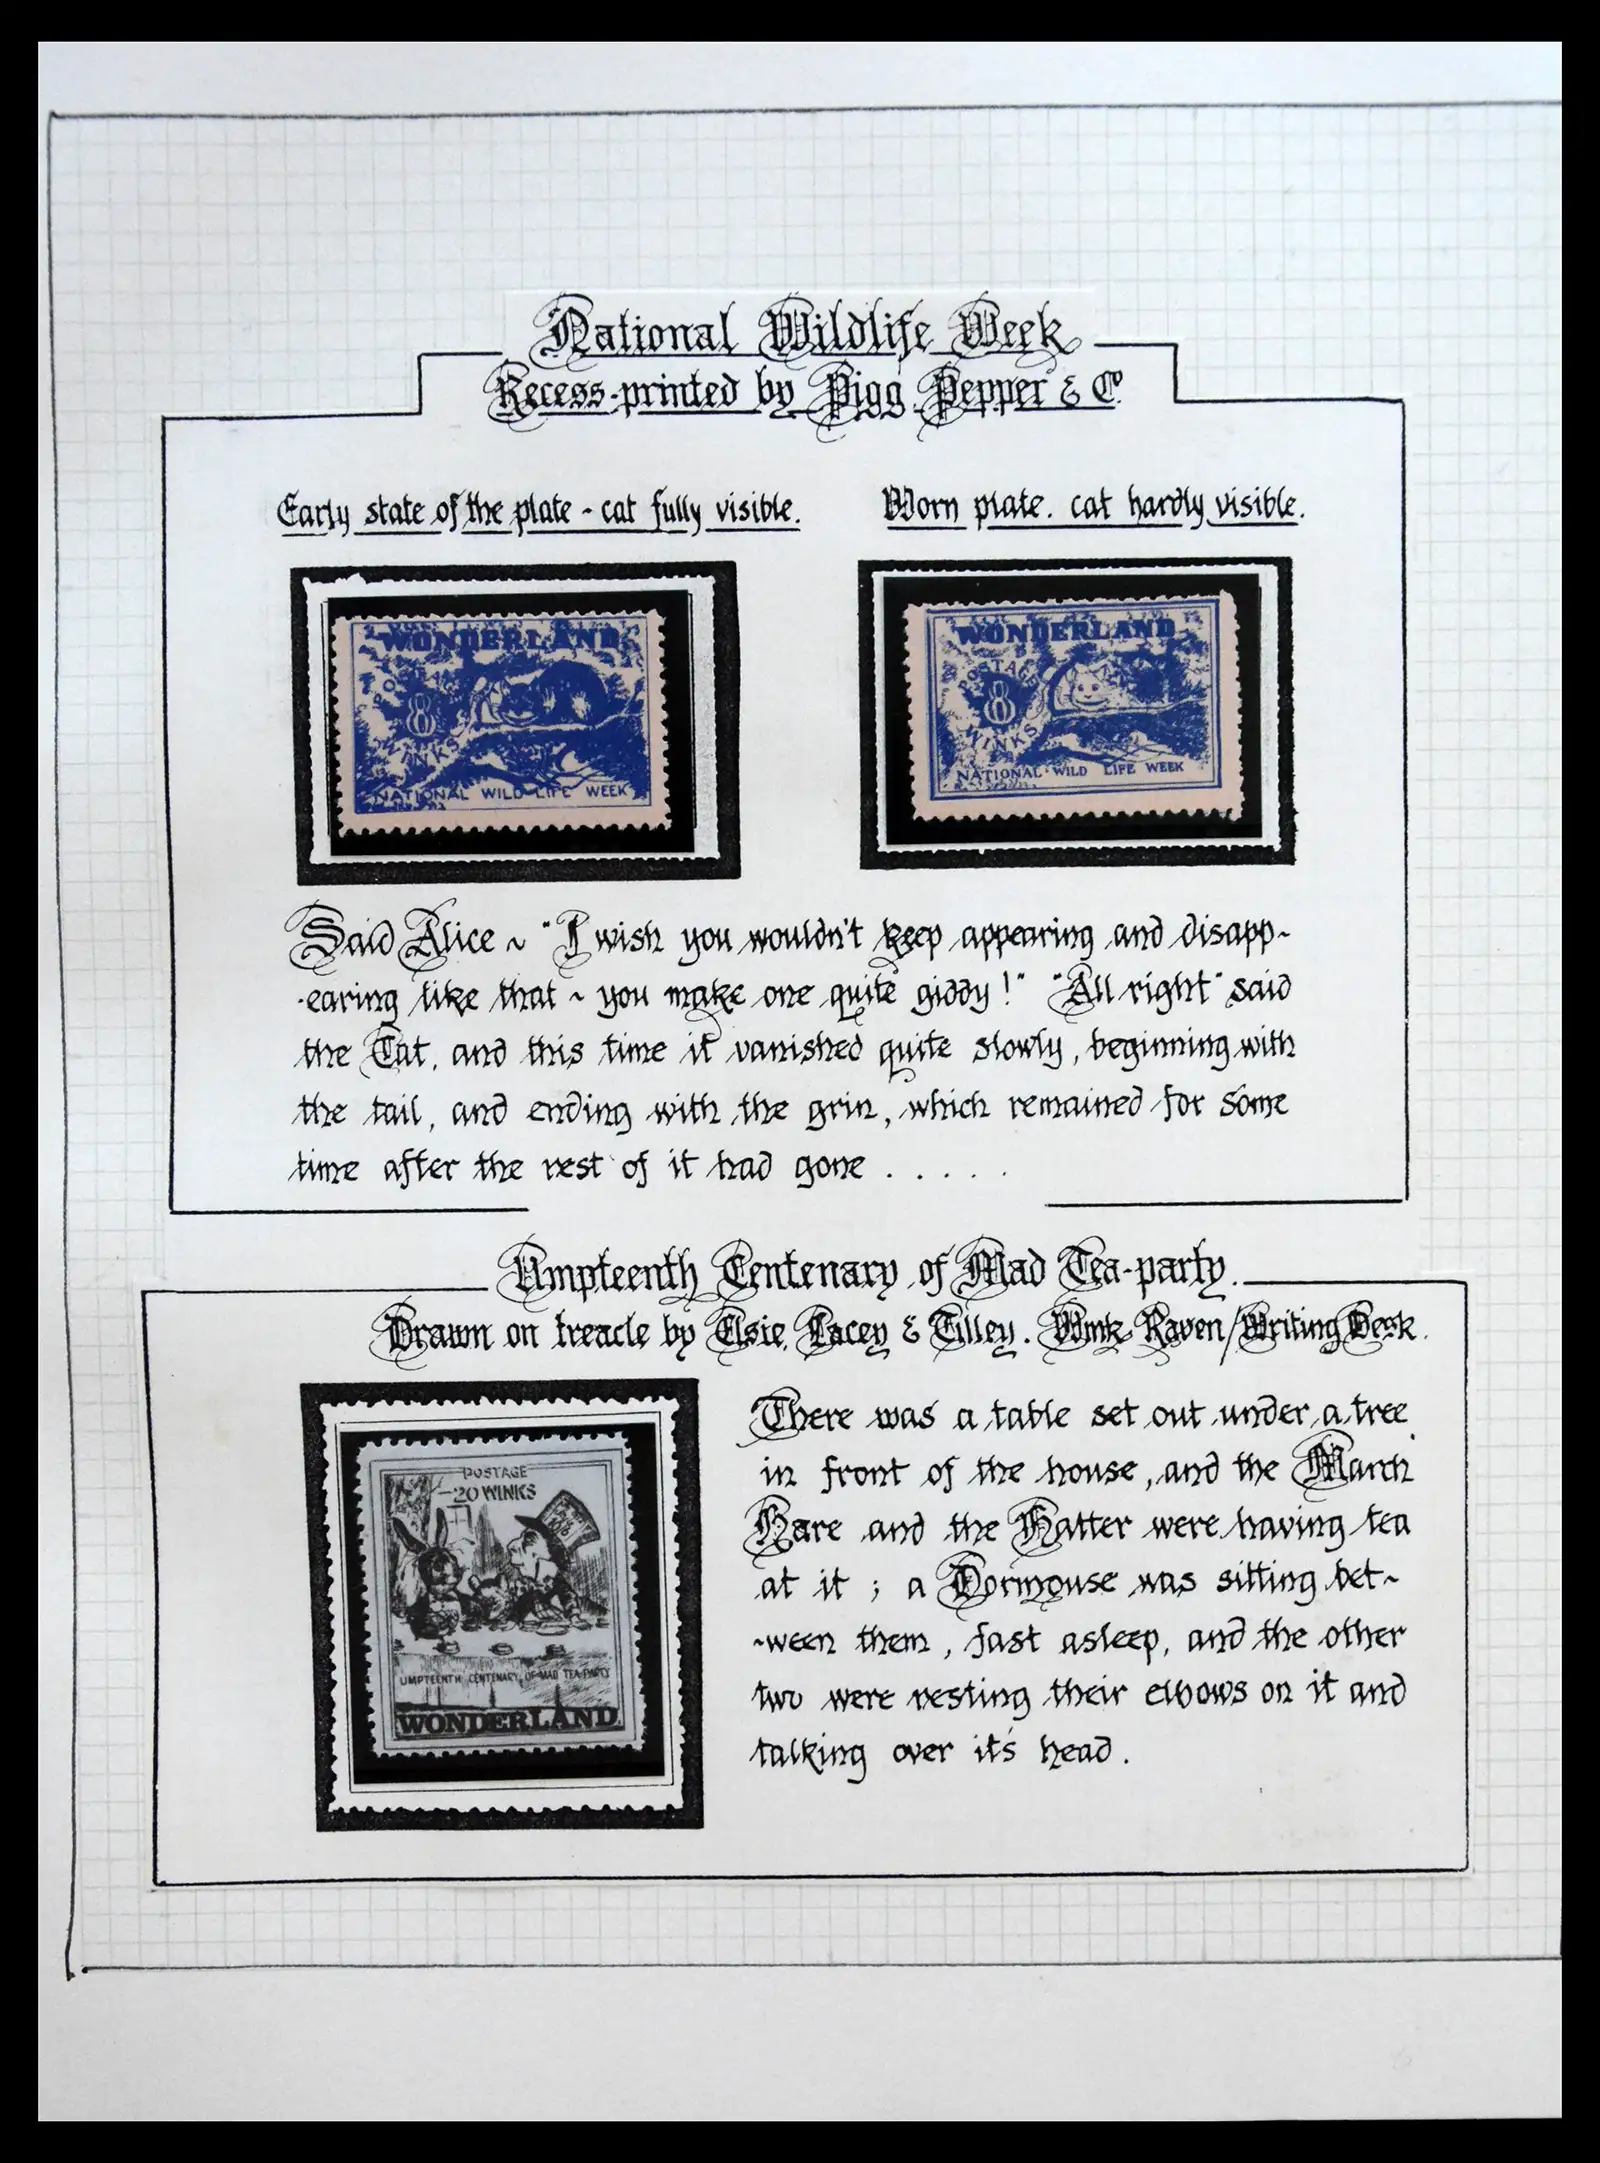 National Wildlife Week
Recess-printed by Pigg, Pepper & Cº
Early state of the plate ~ cat fully visible.
Worn plate. cat hardly visible.
WONDERLAND
POSTAGE
8
WINKS
NATIONAL WILD LIFE WEEK
WONDERLAND
POSTAGE
8
WINKS
NATIONAL WILD LIFE WEEK
Said Alice ~ "I wish you wouldn't keep appearing and disapp~
~earing like that ~ you make one quite giddy!" "All right" said
the Cat, and this time it vanished quite slowly, beginning with
the tail, and ending with the grin, which remained for some
time after the rest of it had gone . . . . .
Umpteenth Centenary of Mad Tea-party.
Drawn on treacle by Elsie, Lacey & Tilley. Wmk Raven/Writing Desk.
POSTAGE
20 WINKS
UMPTEENTH CENTENARY OF MAD TEA PARTY
WONDERLAND
There was a table set out under a tree
in front of the house, and the March
Hare and the Hatter were having tea
at it ; a Dormouse was sitting bet~
~ween them, fast asleep, and the other
two were resting their elbows on it and
talking over it's head.